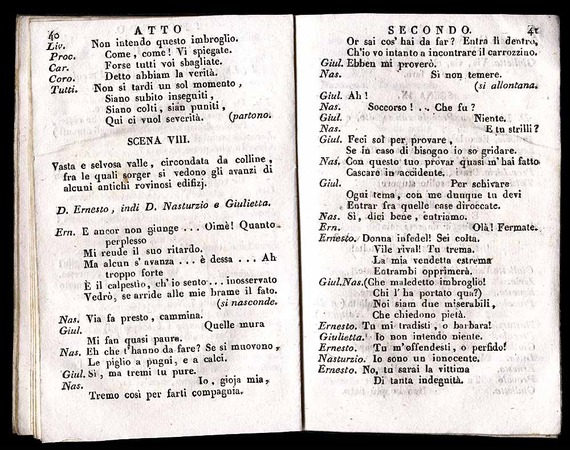 40
ATTO
Liv. Non intendo questo imbroglio.
Proc. Come, come! Vi spiegate.
Car. Forse tutti voi sbagliate.
Coro. Detto abbiam la verità.
Tutti. Non si tardi un sol momento,
Siano subito inseguiti,
Siano colti, sian puniti,
Qui ci vuol severità. (partono.
SCENA VIII.
Vasta e selvosa valle, circondata da colline,
fra le quali sorger si vedono gli avanzi di
alcuni antichi rovinosi edifizj.
D. Ernesto, indi D. Nasturzio e Giulietta.
Ern. E ancor non giunge ... Oimè! Quanto
perplesso
Mi rende il suo ritardo.
Ma alcun s'avanza ... è dessa ... Ah
troppo forte
È il calpestìo, ch'io sento ... inosservato
Vedrò, se arride alle mie brame il fato.
(si nasconde.
Nas. Via fa presto, cammina.
Giul. Quelle mura
Mi fan quasi paura.
Nas. Eh che t'hanno da fare? Se si muovono,
Le piglio a pugni, e a calci.
Giul. Sì, ma tremi tu pure.
Nas. Io, gioja mia,
Tremo così per farti compagnia.
SECONDO.
41
Or sai cos' hai da far? Entra lì dentro,
Ch'io vo intanto a incontrare il carrozzino.
Giul. Ebben mi proverò.
Nas. Si non temere.
(si allontana.
Giul. Ah!
Nas. Soccorso! .. Che fu?
Giul. Niente.
Nas. E tu strilli?
Giul. Feci sol per provare,
Se in caso di bisogno io so gridare.
Nas. Con questo tuo provar quasi m'hai fatto
Cascare in accidente.
Giul. Per schivare
Ogni tema, con me dunque tu devi
Entrar fra quelle case diroccate.
Nas. Sì, dici bene, entriamo.
Ern. Olà! Fermate.
Ernesto. Donna infedel! Sei colta.
Vile rival! Tu trema.
La mia vendetta estrema
Entrambi opprimerà.
Giul.Nas.(Che maledetto imbroglio!
Chi l'ha portato qua?)
Noi siam due miserabili,
Che chiedono pietà.
Ernesto. Tu mi tradisti, o barbara!
Giulietta. Io non intendo niente.
Ernesto. Tu m'offendesti, o perfido!
Nasturzio. Io sono un innocente.
Ernesto. No, tu sarai la vittima
Di tanta indegnità.